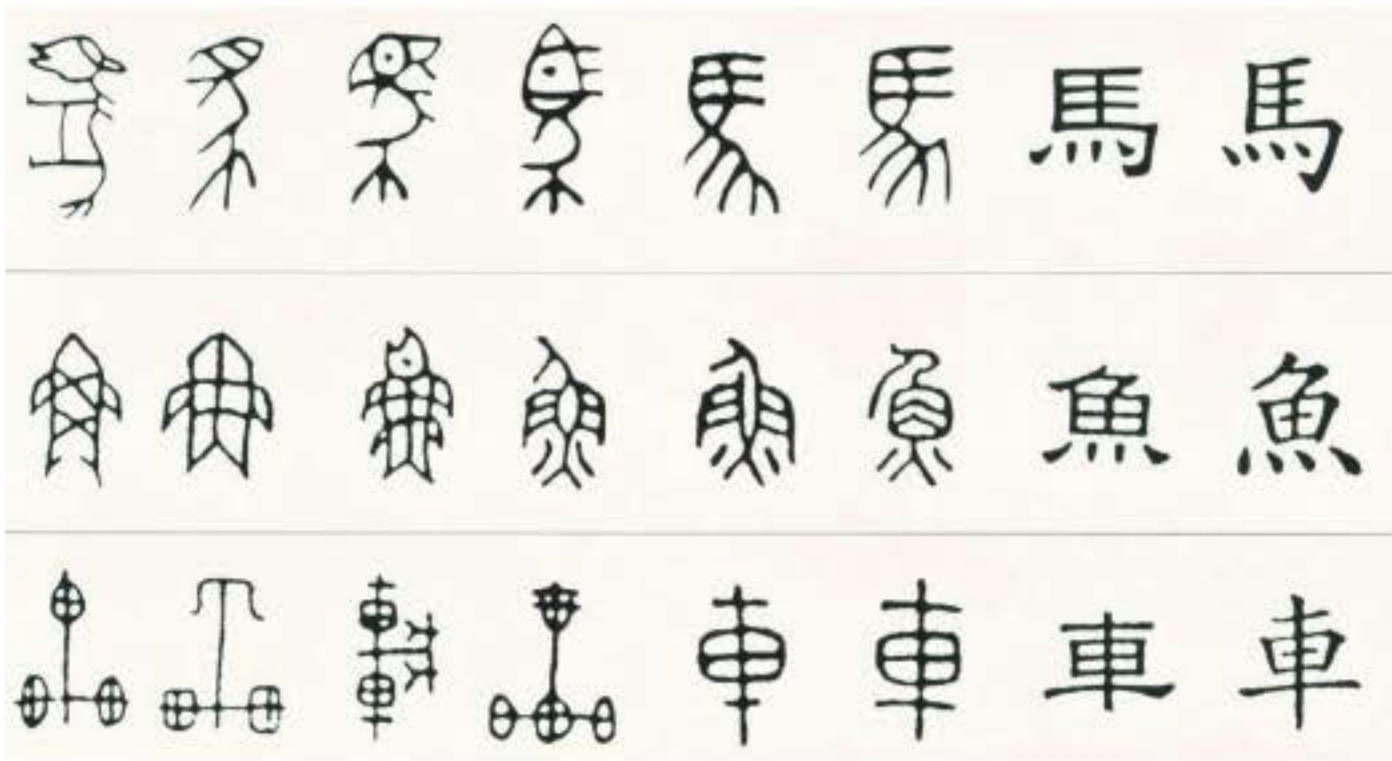 馬 馬 馬 馬 馬 馬 馬 馬
魚 魚 魚 魚 魚 魚 魚 魚
車 車 車 車 車 車 車 車